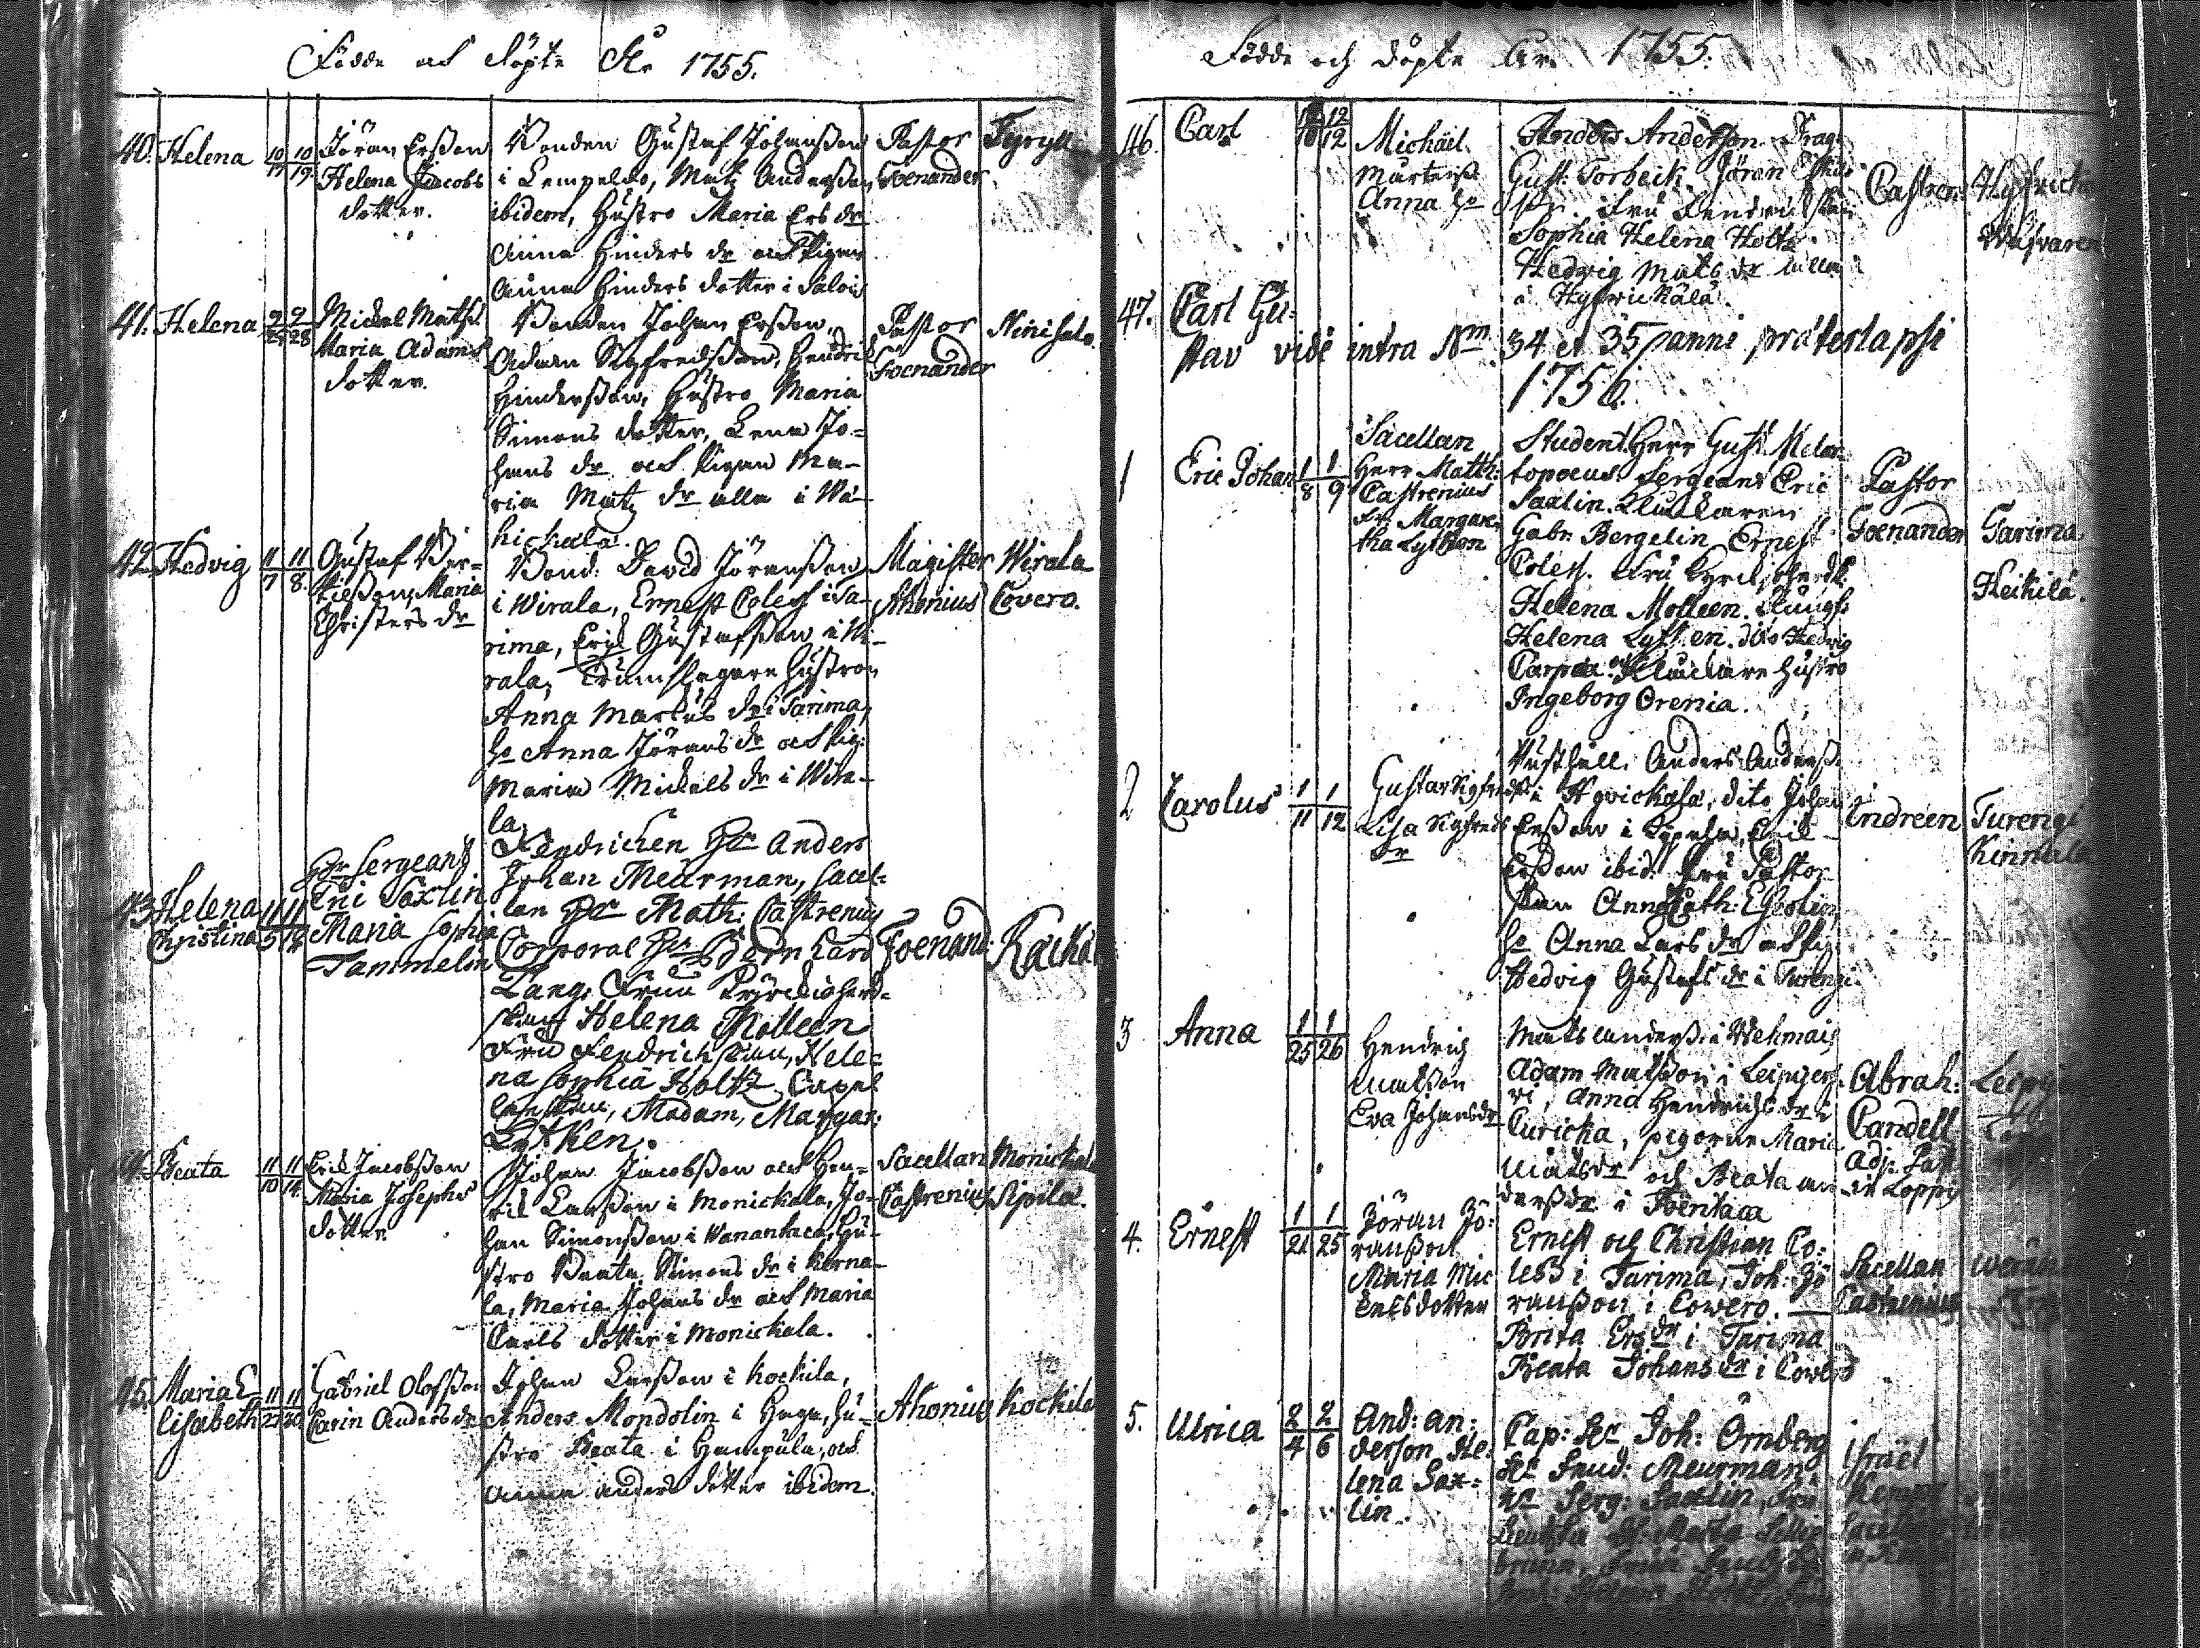 Födde och döpte Åhr 1755.
40. Helena 10/17 10/19 Jöran Ersson
Helena Jacobs
dotter.
Bonden Gustaf Johansson
i Lempelto, Matz Andersson
ibidem, Hustro Maria Ers dr
Anna Hinders dr och Pigan
Anna Hinders dotter i Salois
Pastor
Foenander
Tyryn
41. Helena 9/27 9/28 Mickel Mathss
Maria Adams
dotter.
Bonden Johan Ersson,
Adam Sigfredsson, Hendrik
Hindersson, Hustro Maria
Simons dotter, Lena Jo=
hans dr och Pigan Ma-
ria Matz dr alla i Wä-
hickala.
Pastor
Foenander
Ninisalo.
42. Hedvig 11/7 11/8. Gustaf Ber=
tilsson, Maria
Christers dr
Bond: David Jöransson
i Wirala, Ernest Coless i Ta-
rima, Erik Gustafsson i Wi-
rala, Trumslagare Hustron
Anna Markus dr i Tarima,
ho Anna Jörans dr och Pig:
Maria Mickels dr i Wira-
la.
Magister
Ahonius
Wirala
Covero.
43. Helena
Christina 11/5 Hr Sergeant
Eric Saxlin
Maria Sophia
Tammelin
Fendrichen Hr Anders
Johan Meurman, Sacel-
lan Hr Math: Castrenius
Corporal Hr Bernhard
Lang, Fruu Kyrckioherd=
skan Helena Molleen
Fru Fendrichskan, Hele=
na Sophia Holtz, Capel
lanskan, Madam, Margar:
Lytken.
Foenand:
44. Beata 11/10 11/14 Erik Jacobsson
Maria Josephs
dotter
Johan Jacobsson och Hen=
rik Larsson i Monickala, Jo-
han Simonsson i Wanantaca, Hu-
stro Beata Simons dr i Kerna-
la, Maria Johans dr och Maria
Carls dotter i Monickala.
Sacellan
Castrenius
Monickala
Sipilä.
45. Maria E-
lisabeth 11/27 11/30 Gabriel Olofsson
Carin Anders dr
Johan Larsson i Kockila,
Anders Mondolin i Haga, Hu=
stro Beata i Hampula, och
Anna Anders dotter ibidem.
Ahonius
Kockila
Födde och döpte År. 1755.
46. Carl 12/10 12/12 Michäil
Mårtenss
Anna
Anders Andersson. Drag:
Gust: Torbeck. Jöran
Fru Fendrickskan
Sophia Helena Holtz.
Hedvig Mats dr alla
i Hyfrickälä.
Castren:
47. Carl Gu:
stav vide intra Nm 34 et 35 anni präterlapsi
1756.
1 Eric Johan 1/8 1/9 Sacellan
Herr Matth:
Castrenius
Fr. Margare-
tha Lytken
Student Herr Gust: Melar
topoeus. Sergeant Eric
Saxlin. Klockaren
Gabr. Bergelin Ernest
Coless. Fru Kyrckioherdsk:
Helena Molleen. Jungf:
Helena Lytken. dito Hedvig
Klockare Hustro
Ingeborg Orenia.
Pastor
Foenander
Tarima
Heikilä.
2 Carolus 1/11 1/12 Gustav Sigfreds
Lisa Sigfreds
dr
Rusthåll: Anders Anderss:
dito Johan
Ersson i
Ersson ibid. Fru Pastor-
skan Anna Cath: Escolin,
ho Anna Lars dr och Pig:
Hedvig Gustafs dr i Turengi.
Indreen
Turengi
3 Anna 1/25 1/26 Hendrich
Matsson
Eva Johansdr
Mats Anderss: i Wehmais
Adam Matsson i Leipijer-
vi, Anna Hendrichs dr i
Curicka, pigorne Maria
Matsdr och Beata An-
derssdr i Föenitaca
Abrah:
Candell
Adj: Past:
in Loppis
4. Ernest 1/21 1/25 Jöran Jö:
ransson
Maria Mic
kelsdotter
Ernest och Christian Co:
less i Tarima, Joh: Jö
ransson i Cowero. —
Brita Ersdr i Tarima
Beata Johansdr i Cowero
Sacellan
Castrenius
5. Ulrica 2/4 2/6 And: An:
derson, He:
lena Sax:
lin.
Cap: Hr Joh: Örnberg
Hr Fend: Meurman.
Hr Serg: Saxlin,
Israel